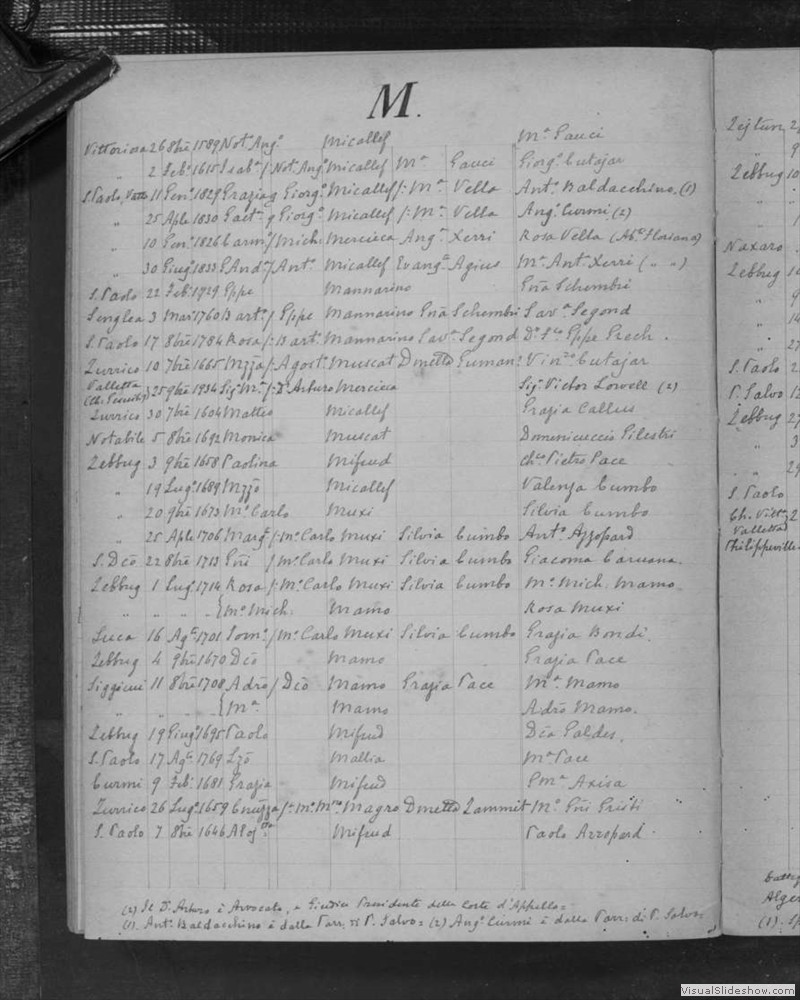 M.
Vittoriosa 26 8bre 1589 Not Angº Micallef Mª Gauci
" 2 Febº 1615 Isabª / Not. Angº Micallef Mª Gauci Giorgº Cutajar
S. Paolo, Vallª 11 Genº 1829 Grazia q Giorgº Micallef /: Mª Vella Antº Baldacchino. (1)
" 25 Aple 1830 Gaetª q Giorgº Micallef /: Mª Vella Angº Curmi (2)
" 10 Genº 1826 Carmª / Mich: Mercieca Angª Xerri Rosa Vella (Abª Floriana)
" 30 Giugº 1833 G. Andª / Antº Micallef Evangª Agius Mª Antª Xerri ( " " )
S. Paolo 22 Febº 1729 Gppe Mannarino Gña Schembri
Senglea 3 Marº 1760 Bartº / Gppe Mannarino Gña Schembri Savª Segond
S. Paolo 17 8bre 1784 Rosa /: Bartº Mannarino Savª Segond Dr Gppe Grech.
Zurrico 10 7bre 1665 Mzzª /: Agostº Muscat Dmetta Guman: Vinzº Cutajar
Valletta 25 9bre 1934 Sigª Mª /: Dr Arturo Mercieca Sigr Victor Lowell (2)
Zurrico 30 7bre 1604 Matteo Micallef Grazia Callus
Notabile 5 8bre 1692 Monica Muscat Domenicuccio Pilestri
Zebbug 3 9bre 1658 Paolina Mifsud Chco Pietro Pace
" 19 Lugº 1689 Mzzo Micallef Valenza Cumbo
" 20 9bre 1673 Mº Carlo Muxi Silvia Cumbo
" 25 Aple 1706 Margª /: Mº Carlo Muxi Silvia Cumbo Antº Azzopard
S. Dco 22 8bre 1713 Gni / Mº Carlo Muxi Silvia Cumbo Giacoma Caruana.
Zebbug 1 Lugº 1714 Rosa /: Mº Carlo Muxi Silvia Cumbo Mº Mich: Mamo
" " " " { Mº Mich: Mamo Rosa Muxi
Luca 16 Agº 1701 / Mº Carlo Muxi Silvia Cumbo Grazia Bondi.
Zebbug 4 9bre 1670 Dco Mamo Grazia Pace
Siggieui 11 8bre 1708 Adro / Dco Mamo Grazia Pace Mª Mamo
" " " { Mª Mamo Adro Mamo.
Zebbug 19 Giugº 1695 Paolo Mifsud Dca Galdes.
S. Paolo 17 Agº 1769 Lzo Mallia Mª Pace
Curmi 9 Febº 1681 Grazia Mifsud Gmª Axisa
Zurrico 26 Lugº 1659 Cnuzza /: Magro Dmetta Zammit Mº Gni Pristi
S. Paolo 7 8bre 1646 Mifsud Paolo Azzopard
(2) Il Dr Arturo è Avvocato, e Giudice Presidente della Corte d'Appello =
(1). Antº Baldacchino è della Parr: di P. Salvo = (2) Angº Curmi è della Parr: di P. Salvo:
Zejtun
Zebbug 10
Naxaro
Zebbug
9
14
27
S. Paolo
P. Salvo 12
Zebbug 27
" 3
" 29
S. Paolo
Ch. Vittª 2
Valletta
Philippeville
Alger
(1).
VisualSlideshow.com